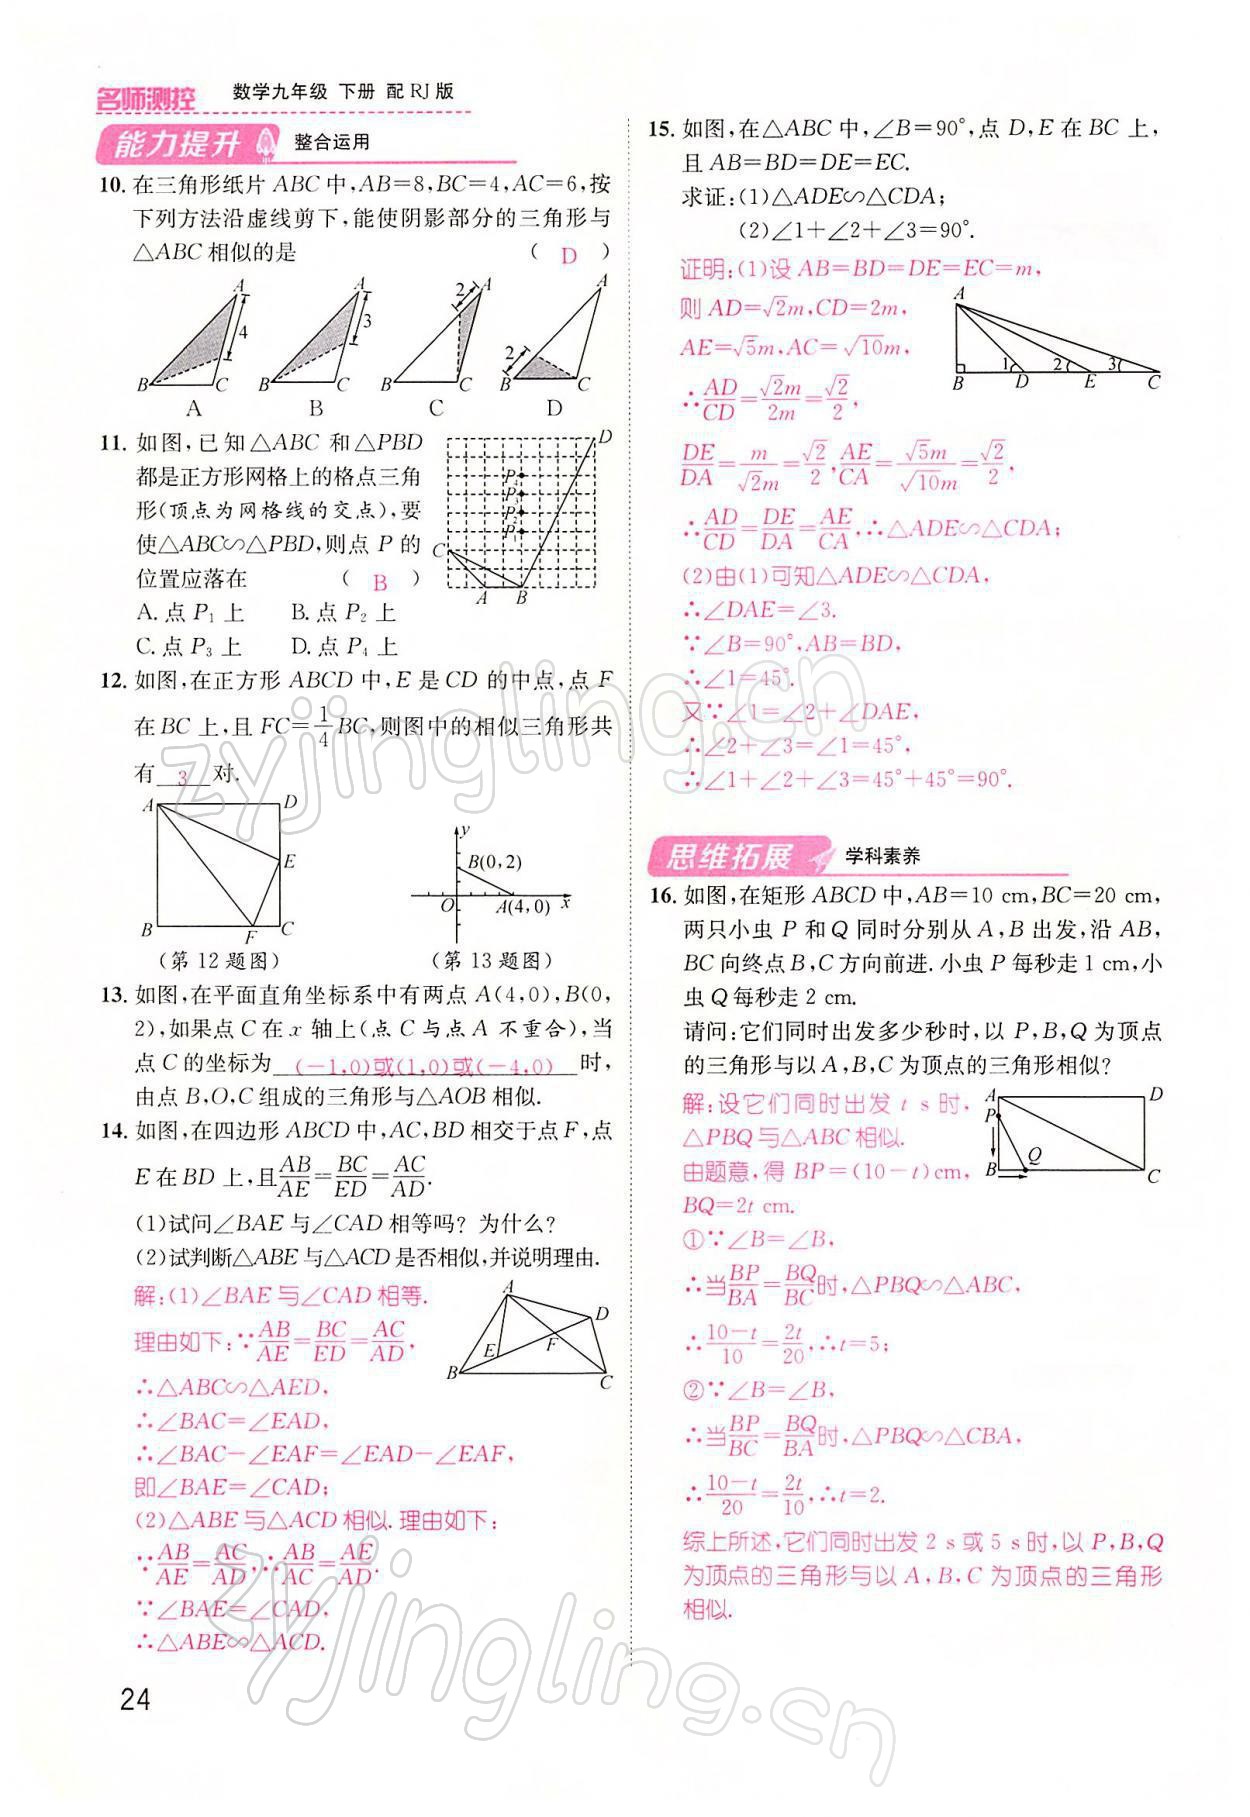 名师测控 数学九年级 下册 配 RJ 版
能力提升 整合运用
10. 在三角形纸片 ABC 中,AB=8,BC=4,AC=6,按
下列方法沿虚线剪下,能使阴影部分的三角形与
△ABC 相似的是 ( D )
A 4 B C A
A 3 B C B
2 A B C C
A 2 B C D
11. 如图,已知△ABC 和△PBD
都是正方形网格上的格点三角
形(顶点为网格线的交点),要
使△ABC∽△PBD,则点 P 的
位置应落在 ( B )
A. 点 P₁ 上 B. 点 P₂ 上
C. 点 P₃ 上 D. 点 P₄ 上
D P₄ P₃ P₂ P₁ C A B
12. 如图,在正方形 ABCD 中,E 是 CD 的中点,点 F
在 BC 上,且 FC=1/4 BC,则图中的相似三角形共
有 3 对.
A D E B F C
(第 12 题图)
y B(0,2) O A(4,0) x
(第 13 题图)
13. 如图,在平面直角坐标系中有两点 A(4,0),B(0,
2),如果点 C 在 x 轴上(点 C 与点 A 不重合),当
点 C 的坐标为 (-1,0)或(1,0)或(-4,0) 时,
由点 B,O,C 组成的三角形与△AOB 相似.
14. 如图,在四边形 ABCD 中,AC,BD 相交于点 F,点
E 在 BD 上,且AB/AE=BC/ED=AC/AD.
(1)试问∠BAE 与∠CAD 相等吗? 为什么?
(2)试判断△ABE 与△ACD 是否相似,并说明理由.
解:(1)∠BAE 与∠CAD 相等.
理由如下:∵AB/AE=BC/ED=AC/AD,
∴△ABC∽△AED,
∴∠BAC=∠EAD,
∴∠BAC-∠EAF=∠EAD-∠EAF,
即∠BAE=∠CAD;
(2)△ABE 与△ACD 相似. 理由如下:
∵AB/AE=AC/AD,∴AB/AC=AE/AD.
∵∠BAE=∠CAD,
∴△ABE∽△ACD.
A D F E B C
24
15. 如图,在△ABC 中,∠B=90°,点 D,E 在 BC 上,
且 AB=BD=DE=EC.
求证:(1)△ADE∽△CDA;
(2)∠1+∠2+∠3=90°.
证明:(1)设 AB=BD=DE=EC=m,
则 AD=√2m,CD=2m,
AE=√5m,AC=√10m,
∴AD/CD=√2m/2m=√2/2,
DE/DA=m/√2m=√2/2,AE/CA=√5m/√10m=√2/2,
∴AD/CD=DE/DA=AE/CA,∴△ADE∽△CDA;
(2)由(1)可知△ADE∽△CDA,
∴∠DAE=∠3.
∵∠B=90°,AB=BD,
∴∠1=45°.
又∵∠1=∠2+∠DAE,
∴∠2+∠3=∠1=45°,
∴∠1+∠2+∠3=45°+45°=90°.
A 1 2 3 B D E C
思维拓展 学科素养
16. 如图,在矩形 ABCD 中,AB=10 cm,BC=20 cm,
两只小虫 P 和 Q 同时分别从 A,B 出发,沿 AB,
BC 向终点 B,C 方向前进. 小虫 P 每秒走 1 cm,小
虫 Q 每秒走 2 cm.
请问:它们同时出发多少秒时,以 P,B,Q 为顶点
的三角形与以 A,B,C 为顶点的三角形相似?
解:设它们同时出发 t s 时,
△PBQ 与△ABC 相似.
由题意,得 BP=(10-t)cm,
BQ=2t cm.
①∵∠B=∠B,
∴当BP/BA=BQ/BC时,△PBQ∽△ABC,
∴10-t/10=2t/20,∴t=5;
②∵∠B=∠B,
∴当BP/BC=BQ/BA时,△PBQ∽△CBA,
∴10-t/20=2t/10,∴t=2.
综上所述,它们同时出发 2 s 或 5 s 时,以 P,B,Q
为顶点的三角形与以 A,B,C 为顶点的三角形
相似.
A D P Q B C
zyjingling.cn
zyjingling.cn